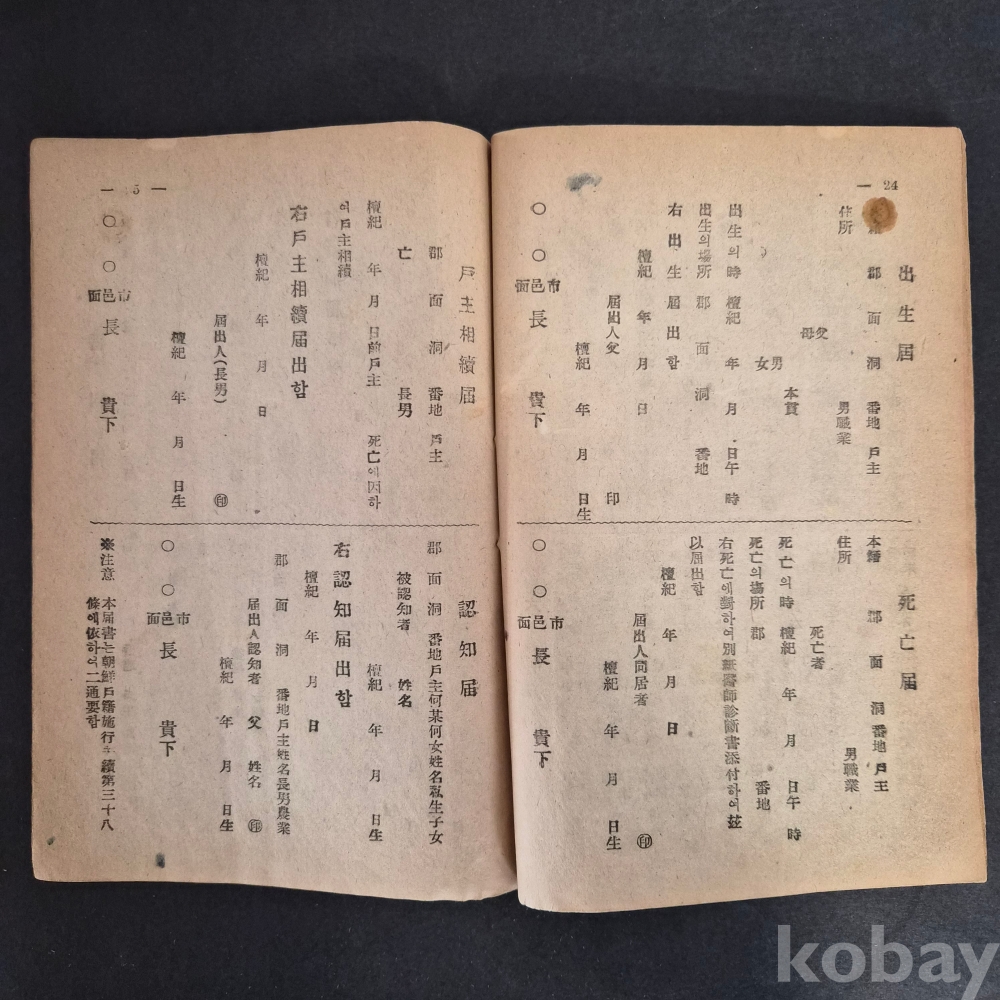 24
出生届
郡 面 洞 番地 戶主
住所 男 職業
父
母
本貫
男
女
出生의 時 檀紀 年 月 日 午 時
出生의 場所 郡 面 洞 番地
右出生届出함
檀紀 年 月 日
届出人 父 印
檀紀 年 月 日生
○○市邑面長 貴下
死亡届
本籍 郡 面 洞 番地 戶主
住所 男 職業
死亡者
死亡의 時 檀紀 年 月 日 午 時
死亡의 場所 郡 番地
右死亡에 對하여 別紙醫師診斷書添付하여 玆
以届出함
檀紀 年 月 日
届出人 同居者 ㊞
檀紀 年 月 日生
○○市邑面長 貴下
5
戶主相續届
郡 面 洞 番地 戶主
亡 長男
檀紀 年 月 日 前戶主 死亡에 因하
여 戶主相續
右戶主相續届出함
檀紀 年 月 日
届出人(長男) ㊞
檀紀 年 月 日生
○○市邑面長 貴下
認知届
郡 面 洞 番地 戶主何某何女姓名私生子女
被認知者 姓名
檀紀 年 月 日生
右認知届出함
檀紀 年 月 日
郡 面 洞 番地 戶主姓名長男農業
届出人 認知者 父 姓名 ㊞
檀紀 年 月 日生
○○市邑面長 貴下
※注意 本届書는 朝鮮戶籍施行手續第三十八
條에 依하여 二通要함
kobay